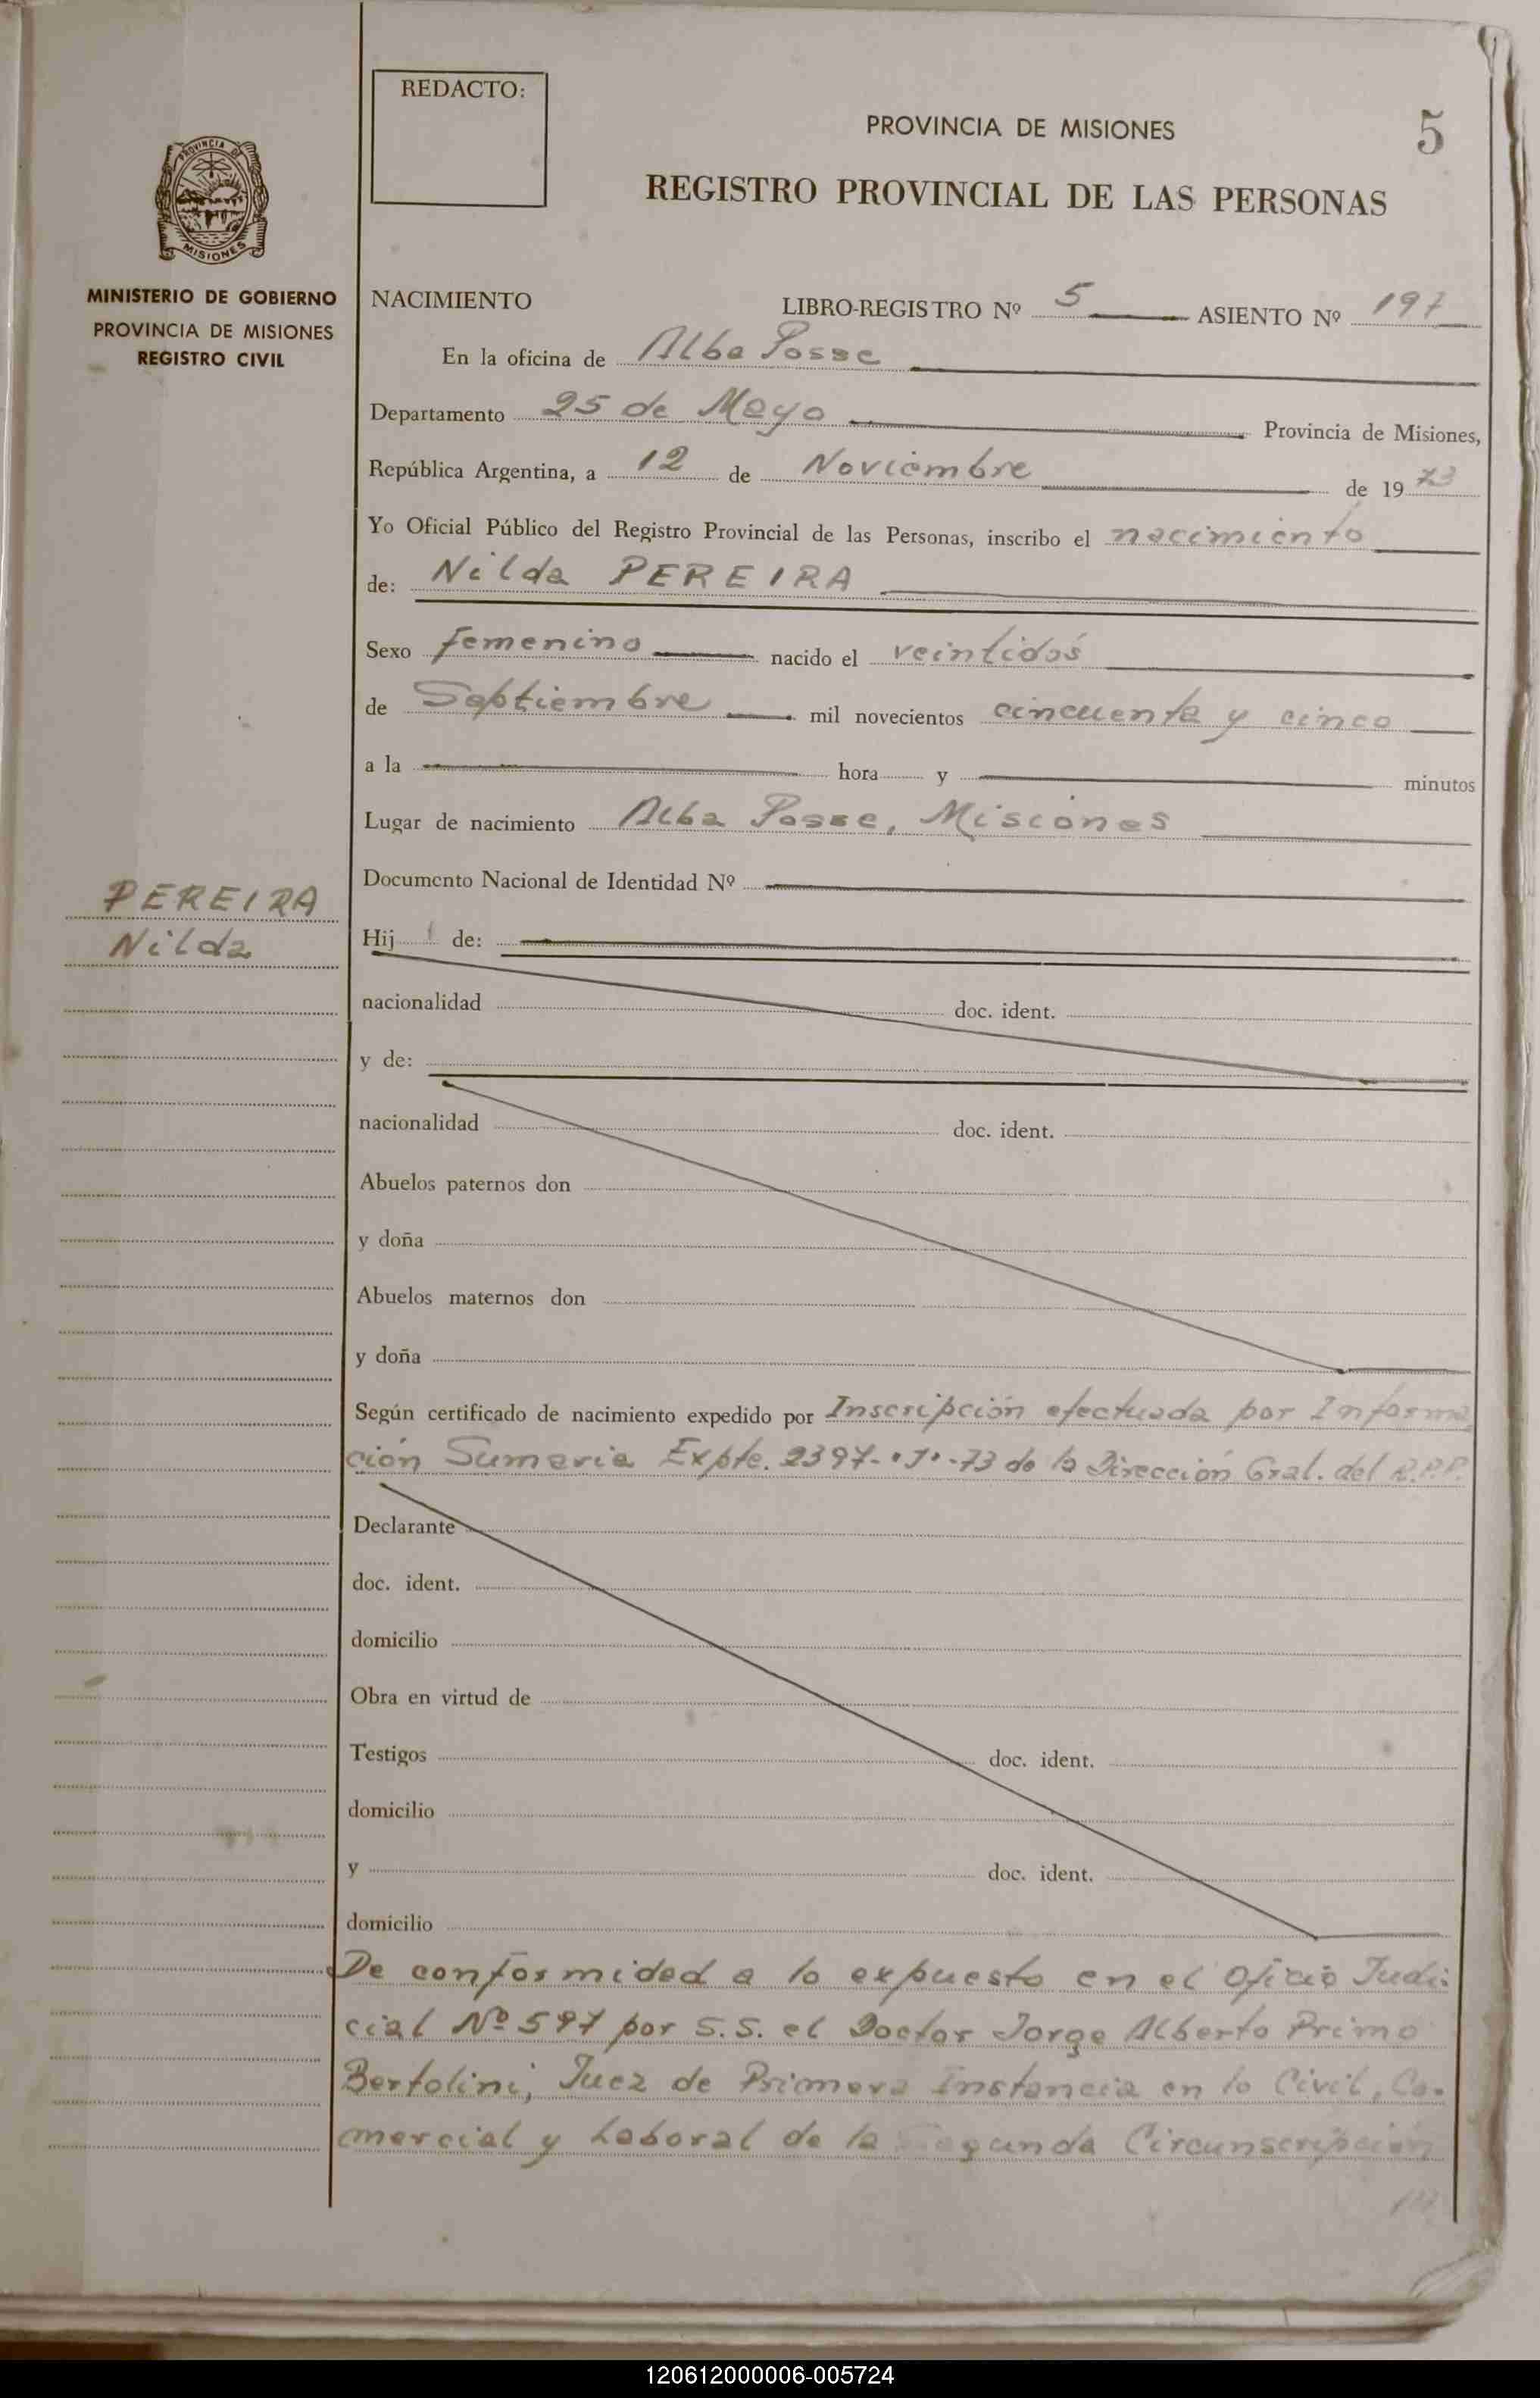 REDACTO:
PROVINCIA DE MISIONES
5
REGISTRO PROVINCIAL DE LAS PERSONAS
PROVINCIA DE
MISIONES
MINISTERIO DE GOBIERNO
PROVINCIA DE MISIONES
REGISTRO CIVIL
NACIMIENTO LIBRO-REGISTRO Nº 5 ASIENTO Nº 197
En la oficina de Alba Posse
Departamento 25 de Mayo Provincia de Misiones,
República Argentina, a 12 de Noviembre de 1973
Yo Oficial Público del Registro Provincial de las Personas, inscribo el nacimiento
de: Nilda PEREIRA
Sexo femenino nacido el veintidós
de Septiembre mil novecientos cincuenta y cinco
a la hora y minutos
Lugar de nacimiento Alba Posse, Misiones
Documento Nacional de Identidad Nº
PEREIRA
Nilda
Hij de:
nacionalidad doc. ident.
y de:
nacionalidad doc. ident.
Abuelos paternos don
y doña
Abuelos maternos don
y doña
Según certificado de nacimiento expedido por Inscripción efectuada por Informa
ción Sumaria Expte. 2397-"J"-73 de la Dirección Gral. del R.P.P.
Declarante
doc. ident.
domicilio
Obra en virtud de
Testigos doc. ident.
domicilio
y doc. ident.
domicilio
De conformidad a lo expuesto en el Oficio Judi-
cial Nº 597 por S.S. el Doctor Jorge Alberto Primo
Bertolini, Juez de Primera Instancia en lo Civil, Co-
mercial y Laboral de la Segunda Circunscripción
120612000006-005724